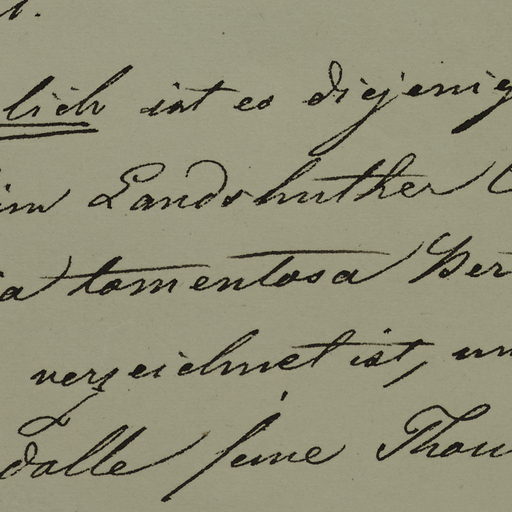 lich ist es diejenig
im Landshuther
ia tomentosa Per
verzeichnet ist, un
dalle seine Thou